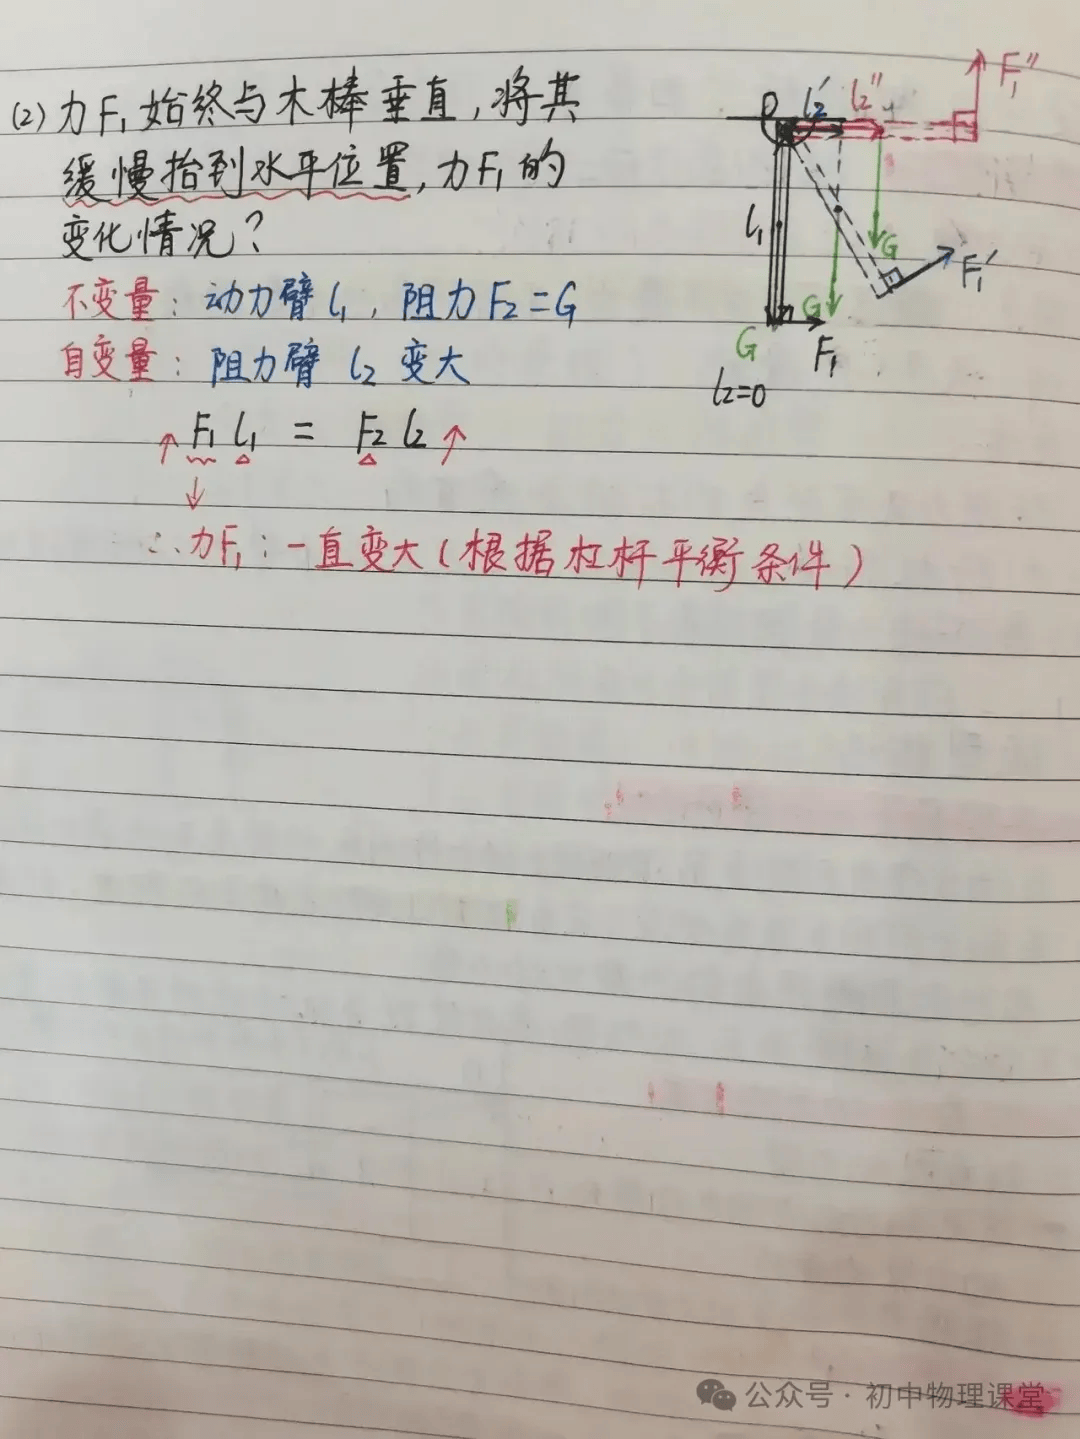 (2) 力F₁始终与木棒垂直,将其
缓慢抬到水平位置,力F₁的
变化情况?
不变量: 动力臂 l₁, 阻力F₂=G
自变量: 阻力臂 l₂ 变大
↑F₁ l₁ = F₂ l₂↑
↓
∴力F₁:一直变大(根据杠杆平衡条件)
O l₂′ l₂″ F₁″
l₁
G F₁′
G
G F₁
l₂=0
公众号·初中物理课堂